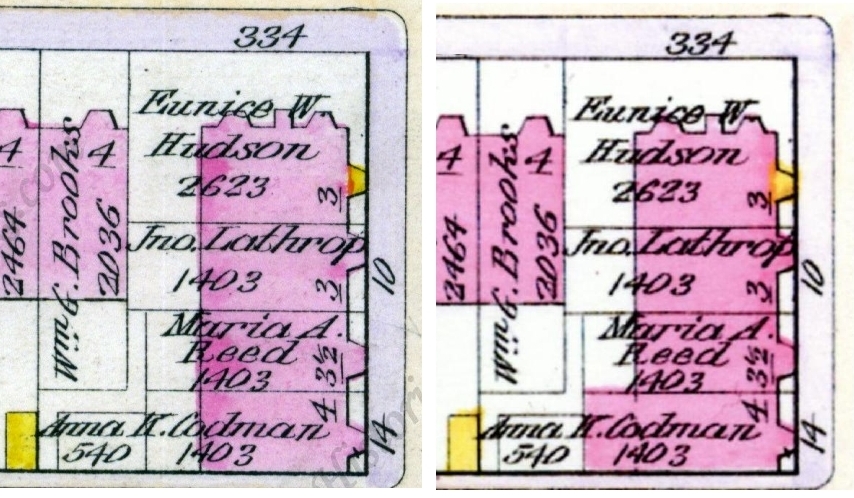 334
Eunice W.
Hudson
2623
3
4
2464
Wm G. Brooks
4
2036
Jno. Lathrop
1403
3
10
Maria A.
Reed
1403
3½
4
Anna K. Codman
540
1403
14
334
Eunice W.
Hudson
2623
3
4
2464
Wm G. Brooks
4
2036
Jno. Lathrop
1403
3
10
Maria A.
Reed
1403
3½
4
Anna K. Codman
540
1403
14